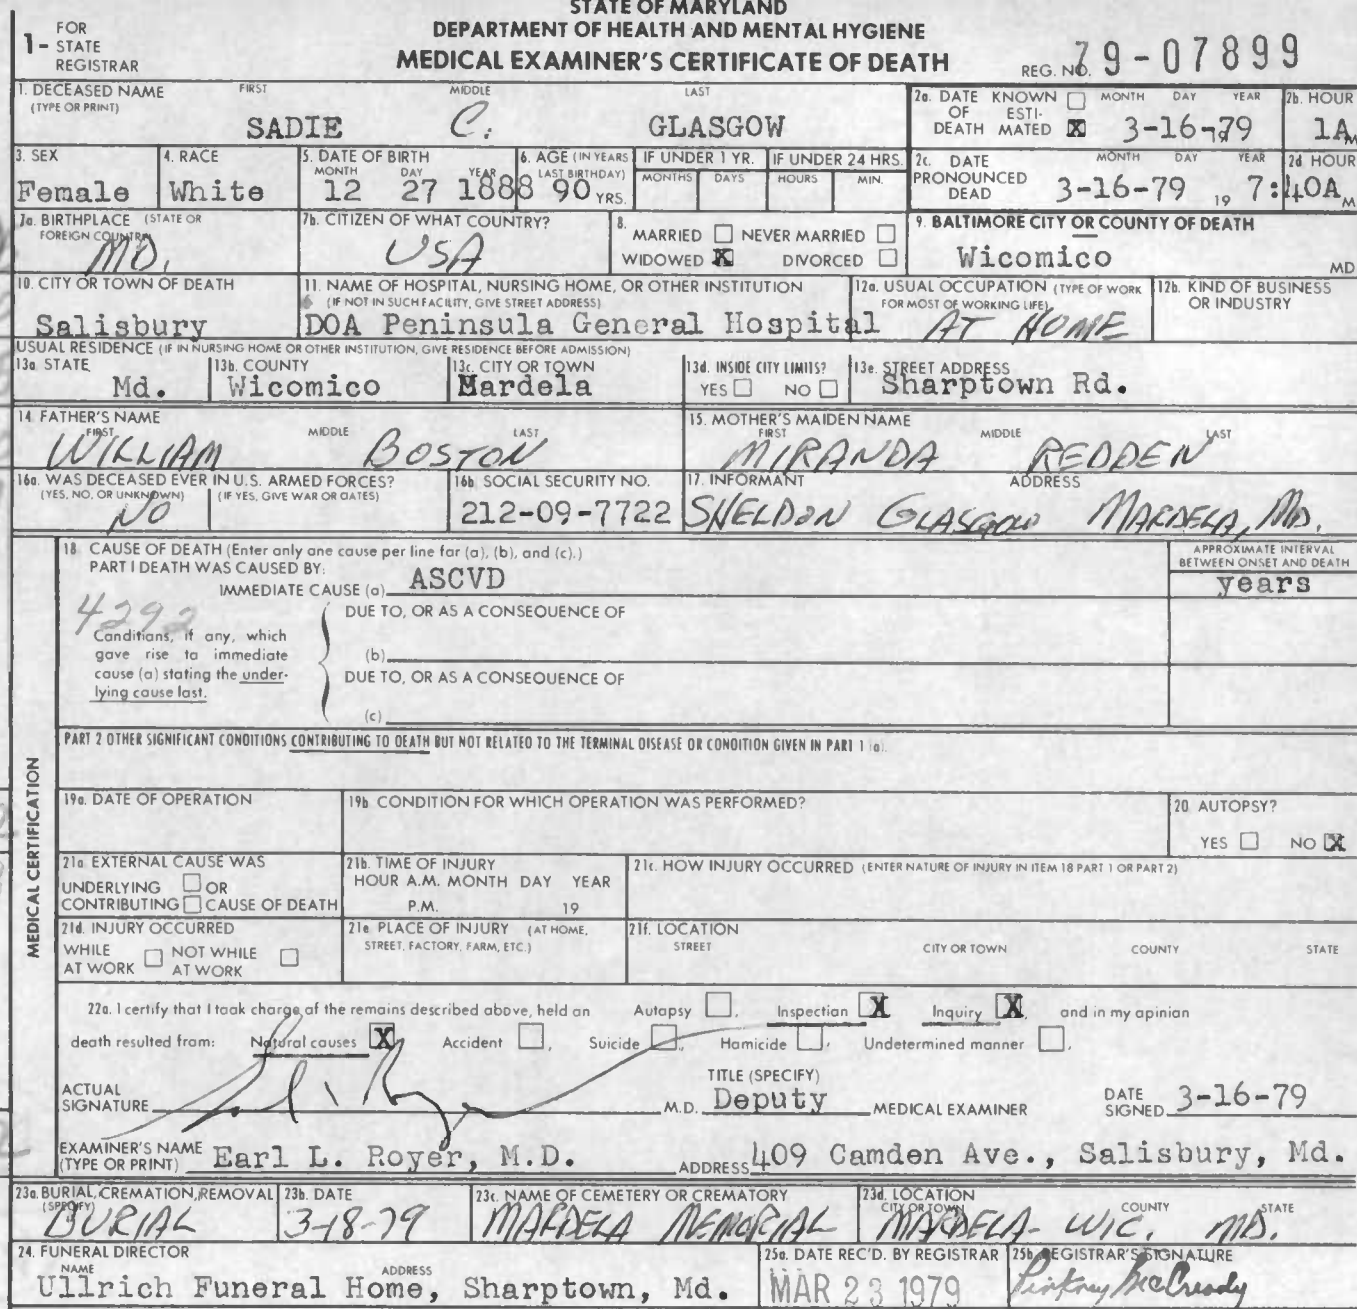 STATE OF MARYLAND
DEPARTMENT OF HEALTH AND MENTAL HYGIENE
MEDICAL EXAMINER'S CERTIFICATE OF DEATH
1- FOR STATE REGISTRAR
REG. NO. 79-07899
1. DECEASED NAME (TYPE OR PRINT) FIRST MIDDLE LAST
SADIE C. GLASGOW
2a. DATE OF DEATH KNOWN ☐ ESTIMATED ☒ MONTH DAY YEAR 3-16-79
2b. HOUR 1A M
3. SEX Female
4. RACE White
5. DATE OF BIRTH MONTH DAY YEAR 12 27 1888
6. AGE (IN YEARS LAST BIRTHDAY) 90 YRS.
IF UNDER 1 YR. MONTHS DAYS
IF UNDER 24 HRS. HOURS MIN.
2c. DATE PRONOUNCED DEAD MONTH DAY YEAR 3-16-79 19
2d HOUR 7:40A M
7a. BIRTHPLACE (STATE OR FOREIGN COUNTRY) MD.
7b. CITIZEN OF WHAT COUNTRY? USA
8. MARRIED ☐ NEVER MARRIED ☐
WIDOWED ☒ DIVORCED ☐
9. BALTIMORE CITY OR COUNTY OF DEATH
Wicomico MD
10. CITY OR TOWN OF DEATH
Salisbury
11. NAME OF HOSPITAL, NURSING HOME, OR OTHER INSTITUTION
(IF NOT IN SUCH FACILITY, GIVE STREET ADDRESS)
DOA Peninsula General Hospital
12a. USUAL OCCUPATION (TYPE OF WORK FOR MOST OF WORKING LIFE)
AT HOME
12b. KIND OF BUSINESS OR INDUSTRY
USUAL RESIDENCE (IF IN NURSING HOME OR OTHER INSTITUTION, GIVE RESIDENCE BEFORE ADMISSION)
13a STATE Md.
13b. COUNTY Wicomico
13c. CITY OR TOWN Mardela
13d. INSIDE CITY LIMITS? YES ☐ NO ☐
13e. STREET ADDRESS Sharptown Rd.
14. FATHER'S NAME FIRST MIDDLE LAST
WILLIAM BOSTON
15. MOTHER'S MAIDEN NAME FIRST MIDDLE LAST
MIRANDA REDDEN
16a. WAS DECEASED EVER IN U.S. ARMED FORCES?
(YES, NO, OR UNKNOWN) (IF YES, GIVE WAR OR DATES)
NO
16b. SOCIAL SECURITY NO.
212-09-7722
17. INFORMANT ADDRESS
SHELDON GLASGOW MARDELA, MD.
18 CAUSE OF DEATH (Enter only one cause per line for (a), (b), and (c).)
PART I DEATH WAS CAUSED BY:
IMMEDIATE CAUSE (a) ASCVD
APPROXIMATE INTERVAL BETWEEN ONSET AND DEATH
years
4292
Conditions, if any, which gave rise to immediate cause (a) stating the underlying cause last.
DUE TO, OR AS A CONSEQUENCE OF
(b)
DUE TO, OR AS A CONSEQUENCE OF
(c)
PART 2 OTHER SIGNIFICANT CONDITIONS CONTRIBUTING TO DEATH BUT NOT RELATED TO THE TERMINAL DISEASE OR CONDITION GIVEN IN PART 1 (a).
MEDICAL CERTIFICATION
19a. DATE OF OPERATION
19b CONDITION FOR WHICH OPERATION WAS PERFORMED?
20 AUTOPSY?
YES ☐ NO ☒
21a EXTERNAL CAUSE WAS
UNDERLYING ☐ OR
CONTRIBUTING ☐ CAUSE OF DEATH
21b. TIME OF INJURY
HOUR A.M. MONTH DAY YEAR
P.M. 19
21c. HOW INJURY OCCURRED (ENTER NATURE OF INJURY IN ITEM 18 PART 1 OR PART 2)
21d. INJURY OCCURRED
WHILE AT WORK ☐ NOT WHILE AT WORK ☐
21e PLACE OF INJURY (AT HOME, STREET, FACTORY, FARM, ETC.)
21f. LOCATION
STREET CITY OR TOWN COUNTY STATE
22a. I certify that I took charge of the remains described above, held an Autopsy ☐, Inspection ☒ Inquiry ☒, and in my opinion
death resulted from: Natural causes ☒ Accident ☐, Suicide ☐, Homicide ☐, Undetermined manner ☐,
ACTUAL SIGNATURE M.D.
TITLE (SPECIFY) Deputy MEDICAL EXAMINER
DATE SIGNED 3-16-79
EXAMINER'S NAME (TYPE OR PRINT) Earl L. Royer, M.D.
ADDRESS 409 Camden Ave., Salisbury, Md.
23a. BURIAL, CREMATION, REMOVAL (SPECIFY) BURIAL
23b. DATE 3-18-79
23c. NAME OF CEMETERY OR CREMATORY
MARDELA MEMORIAL
23d. LOCATION CITY OR TOWN COUNTY STATE
MARDELA- WIC. MD.
24. FUNERAL DIRECTOR
NAME ADDRESS
Ullrich Funeral Home, Sharptown, Md.
25a. DATE REC'D. BY REGISTRAR
MAR 23 1979
25b. REGISTRAR'S SIGNATURE